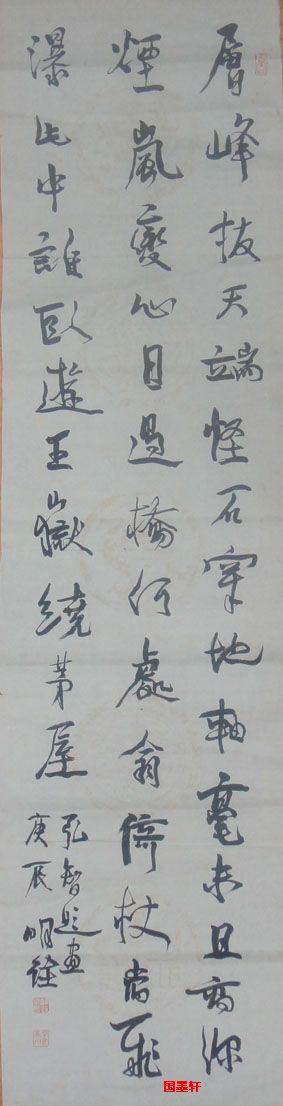 層峰拔天端怪石穿地軸毫末且高深
煙嵐變心目過橋何處翁倚杖當飛
瀑此中誰臥遊五嶽繞茅屋
弘智題畫
庚辰 明詮
国墨轩